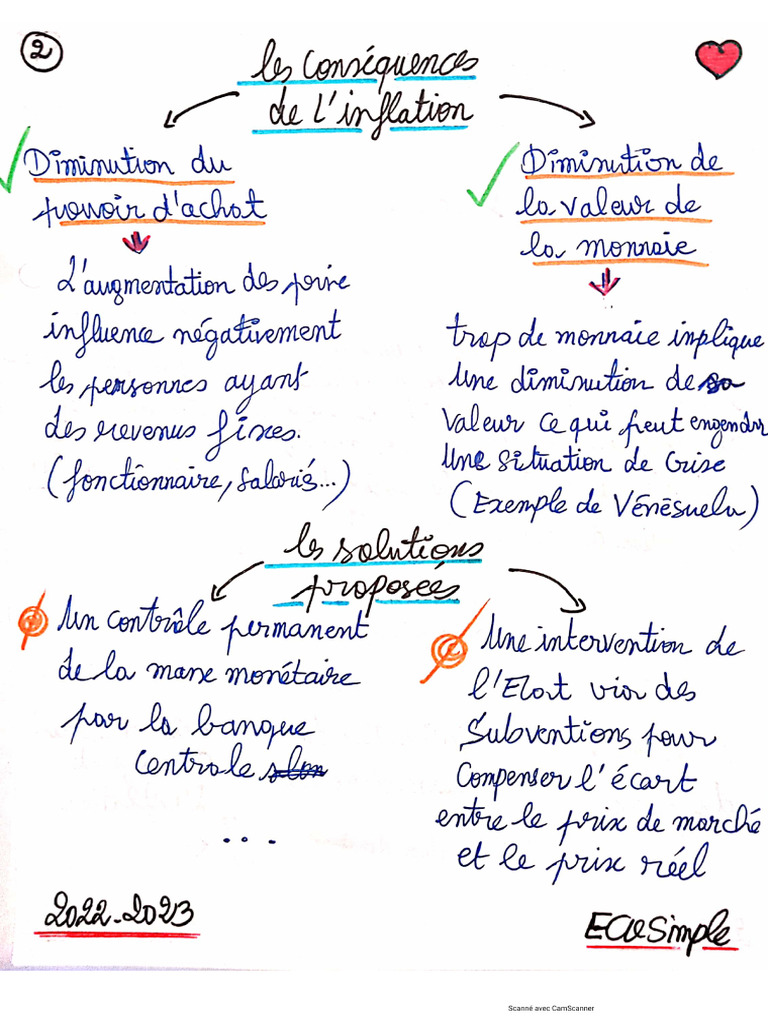 2
les conséquences
de l'inflation
Diminution du
pouvoir d'achat
L'augmentation des prix
influence négativement
les personnes ayant
des revenus fixes.
(fonctionnaire, salariés...)
Diminution de
la valeur de
la monnaie
trop de monnaie inplique
Une diminution de sa
valeur ce qui peut engendrer
Une situation de Crise
(Exemple de Vénésuela)
les solutions
proposées
Un contrôle permanent
de la masse monétaire
par la banque
Centrale selon
...
Une intervention de
l'Etat via des
Subventions pour
Compenser l'écart
entre le prix de marché
et le prix réel
2022-2023
ECOSimple
Scanné avec CamScanner